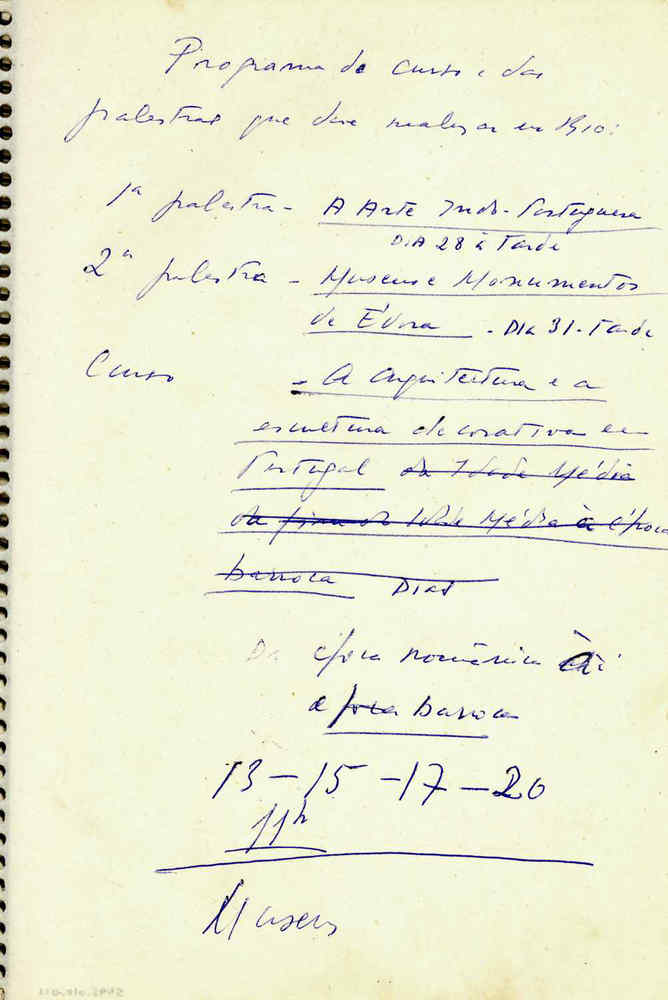 Programa do curso e das
palestras que devo realizar no Rio:
1ª palestra - A Arte Indo-Portuguesa
DIA 28 à Tarde
2ª palestra - Museus e Monumentos
de Évora - DIA 31 - Tarde
Curso - A arquitectura e a
escultura decorativa em
Portugal da Idade Média
da fim da Idade Média à época
barroca DIAS
Da época românica à
epoca barroca
13 - 15 - 17 - 20
11h
Museus